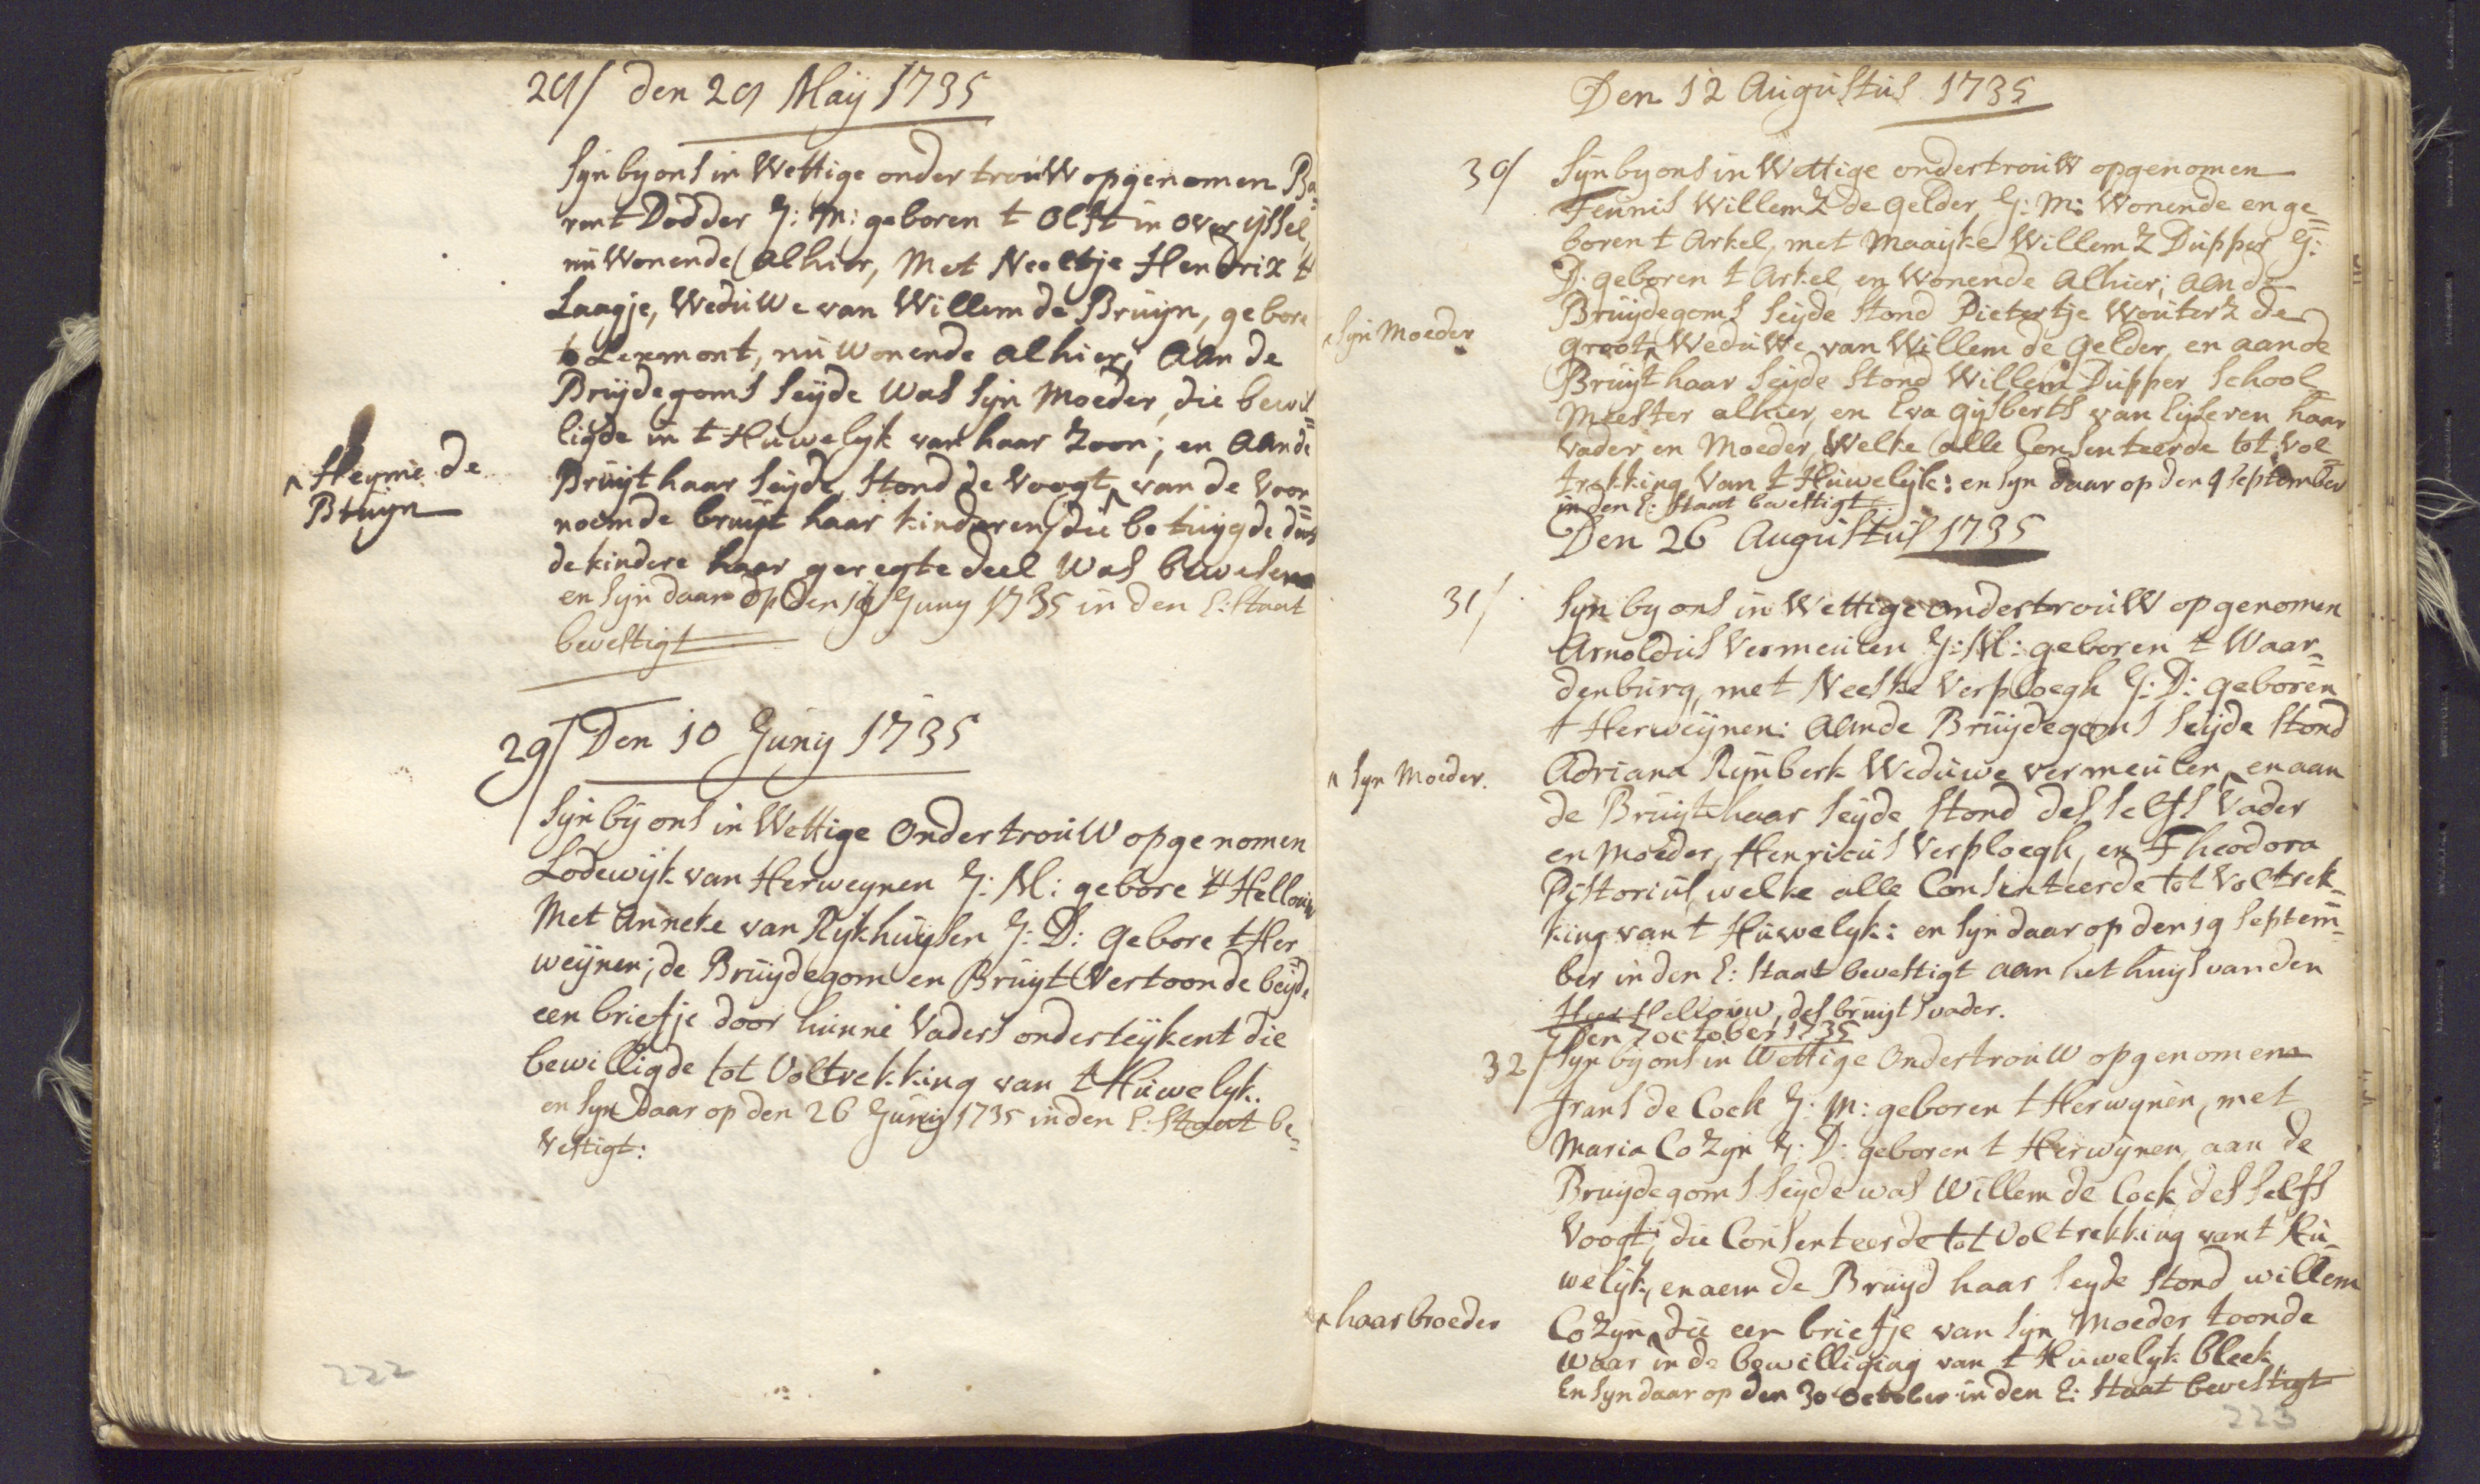 29/ den 29 Maÿ 1735
Sÿn bÿ ons in Wettige onder trouW opgenomen Ba=
rent Dodder J: M: geboren t Olst in over ÿssel,
nú Wonende alhier, Met Neeltje Hendrix t
Laagje, WedúWe van Willem de Bruÿn, gebore
to Lexmont, nú wonende alhier; aan de
Brúÿdegoms seÿde was sÿn Moeder, die bewil=
ligde in t Húwelÿk van haar zoon; en aan de
Brúÿt haar seÿde stond de Voogt ^ van de voor=
^ Heÿme de
Bruÿn
noemde brúÿt haar kinderen, die betúÿgde dat
de kindere haar geregte deel was bewesen
en sÿn daar op den 19 Juny 1735 in den E: Staat
bevestigt
29/ Den 10 Júnÿ 1735
Sÿn bÿ ons in Wettige OndertroúW opgenomen
Lodewÿk van Herweÿnen J: M: gebore t Hellouw
Met Anneke van Rÿkhúÿsen J: D: Gebore t Her=
weÿnen; de Brúÿdegom en Brúÿt Vertoonde beÿde
een briefje door húnne Vaders onderteÿkent die
bewilligde tot Voltrekking van t Húwelÿk.
en sÿn daar op den 26 Júnÿ 1735 in den E: Staat be=
Vestigt:
222
Den 12 Augústús 1735
30/ Sÿn bÿ ons in Wettige ondertroúW opgenomen
Teunis Willemz de Gelder, J: M: Wonende en ge=
boren t Arkel, met Maaÿke Willemz Dúpper J:
D: geboren t Arkel, en Wonende alhier; aan de
Brúÿdegoms seÿde stond Pietertje Woúterz de
^ Sÿn Moeder
groot ^ WedúWe van Willem de Gelder, en aan de
Brúÿt haar seÿde stond Willem Dúpper School
Meester alhier, en Eva Gÿsberts van Eÿseren haar
Vader en Moeder, Welke alle Consenteerde tot vol=
trekking van t Húwelÿk: en sÿn daar op den 9 september
in den E: Staat bevestigt
Den 26 Augústús 1735
31/ Sÿn bÿ ons in Wettige ondertroúW opgenomen
Arnoldús Vermeúlen J: M: geboren t Waar=
denbúrg, met Neeske Verploegh J: D: geboren
t Herweÿnen: aan de Brúÿdegoms seÿde stond
^ Sÿn Moeder.
Adriana Rÿnberk Wedúwe vermeúlen ^ en aan
de Brúÿt haar seÿde stond desselfs Vader
en Moeder, Henricús Verploegh, en Theodora
Pistoriús, welke alle Consenteerde tot Voltrek=
king van t Húwelÿk: en sÿn daar op den 19 Septem=
ber in den E: Staat bevestigt aan het húÿs van den
Heer Hellouw, des brúÿts vader.
Den 7 october 1735
32/ Sÿn bÿ ons in Wettige OndertroúW opgenomen
Frans de Cock J: M: geboren t Herwÿnen, met
Maria Cozÿn J: D: geboren t Herwÿnen, aan de
Brúÿdegoms seÿde was Willem de Cock desselfs
Voogt; die Consenteerde tot Voltrekking van t Hú=
welÿk, en aen de Brúÿd haar seÿde stond willem
^ haar broeder
Cozÿn ^ die een briefje van sÿn Moeder toonde
waar in de bewilliging van t Húwelÿk bleek,
En sÿn daar op den 30 October in den E: Staat bevestigt
223